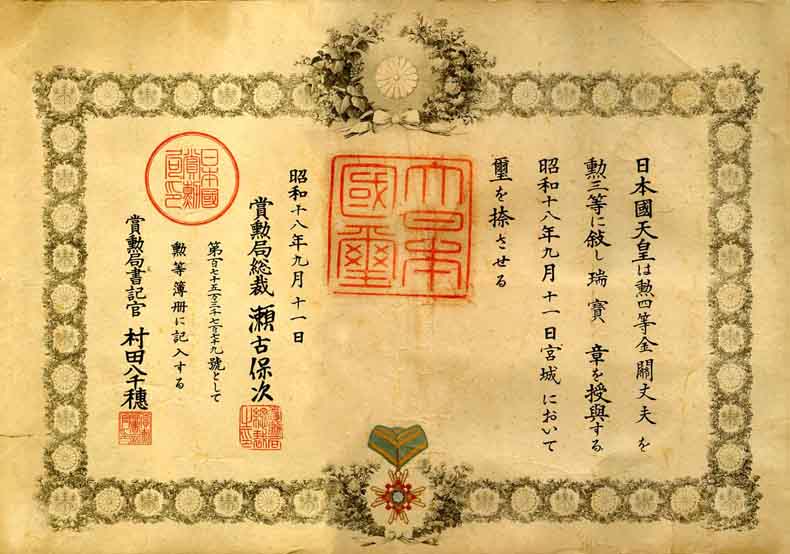 日本國天皇は勲四等金關丈夫を
勲三等に敍し瑞寶章を授與する
昭和十八年九月十一日宮城において
璽を捺させる
大日本國璽
昭和十八年九月十一日
賞勲局総裁 瀬古保次
第百七十五万三千七百七十九號として
勲等簿册に記入する
賞勲局書記官 村田八千穗
日本國賞勲局印